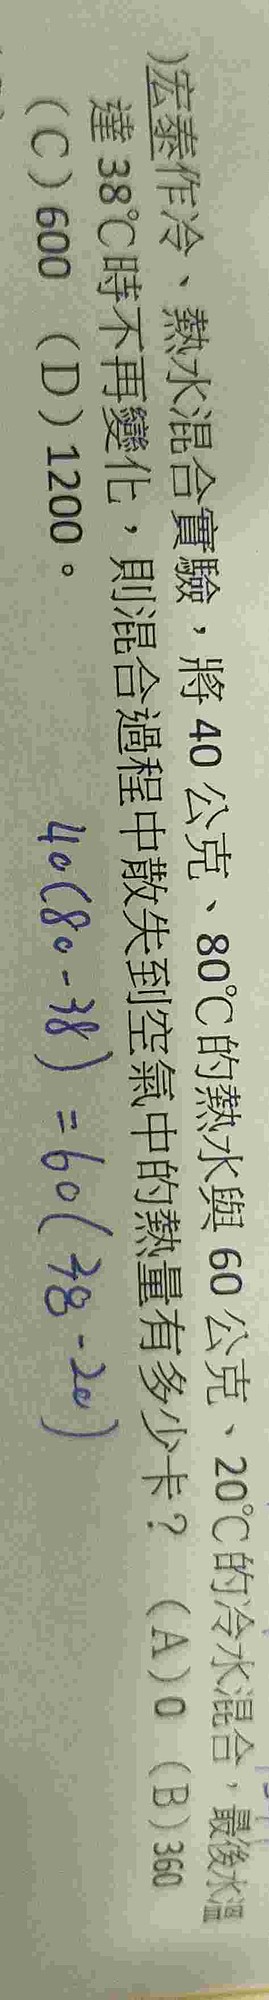 )宏泰作冷、熱水混合實驗，將 40 公克、80℃的熱水與 60 公克、20℃的冷水混合，最後水溫
達 38℃時不再變化，則混合過程中散失到空氣中的熱量有多少卡？ (A)0 (B)360
(C)600 (D)1200。
40(80-38) = 60(38-20)